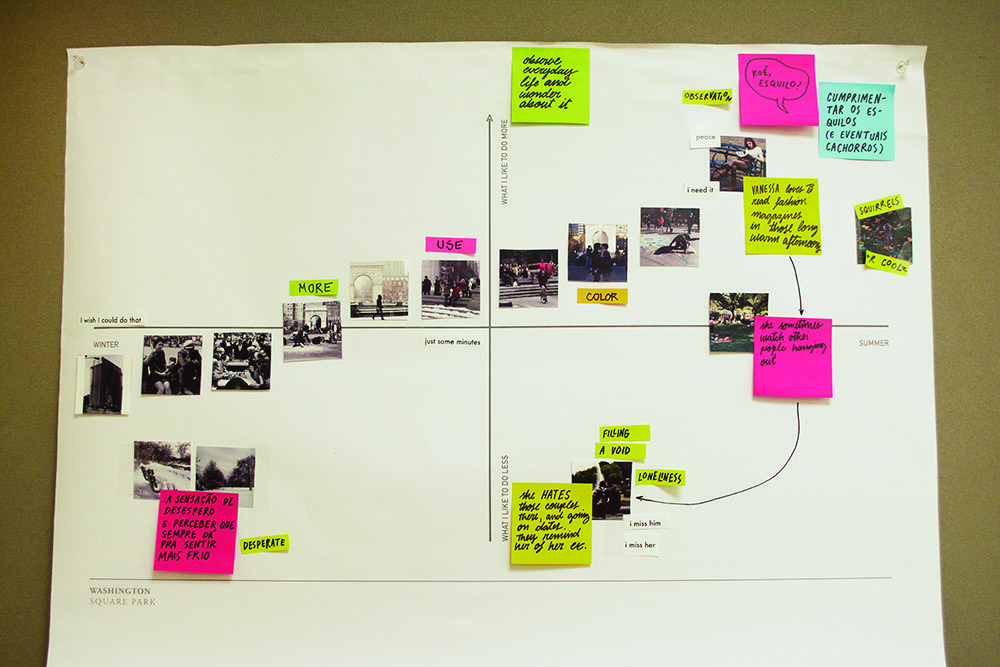 observe
everyday
life and
wonder
about it
OBSERVATION
KOÉ,
ESQUILO?
CUMPRIMEN-
TAR OS ES-
QUILOS
(E EVENTUAIS
CACHORROS)
peace
i need it
VANESSA loves to
read fashion
magazines
in those long
warm afternoons
SQUIRRELS
"R COOL"
WHAT I LIKE TO DO MORE
USE
MORE
COLOR
i wish I could do that
WINTER
just some minutes
SUMMER
she sometimes
watch other
people hanging
out
FILLING
A VOID
LONELINESS
she HATES
those couples
there, and going
on dates.
they remind
her of her ex.
i miss him
i miss her
WHAT I LIKE TO DO LESS
A SENSAÇÃO DE
DESESPERO
E PERCEBER QUE
SEMPRE DÁ
PRA SENTIR
MAIS FRIO
DESPERATE
WASHINGTON
SQUARE PARK